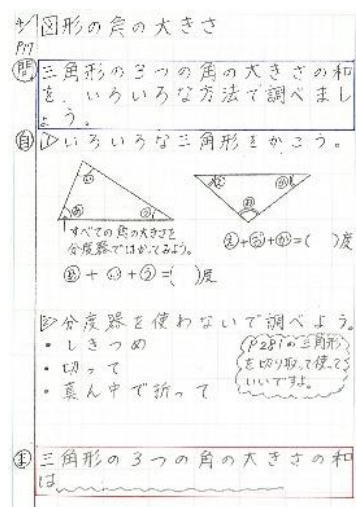 図形の角の大きさ
P17
問
三角形の3つの角の大きさの和
を、いろいろな方法で調べまし
ょう。
自
1 いろいろな三角形をかこう。
すべての角の大きさを
分度器ではかってみよう。
あ + い + う =( )度
え+お+か=( )度
2 分度器を使わないで調べよう。
・しきつめ
・切って
・真ん中で折って
P281の三角形
を切り取って使って
いいですよ。
ま
三角形の3つの角の大きさの和
は